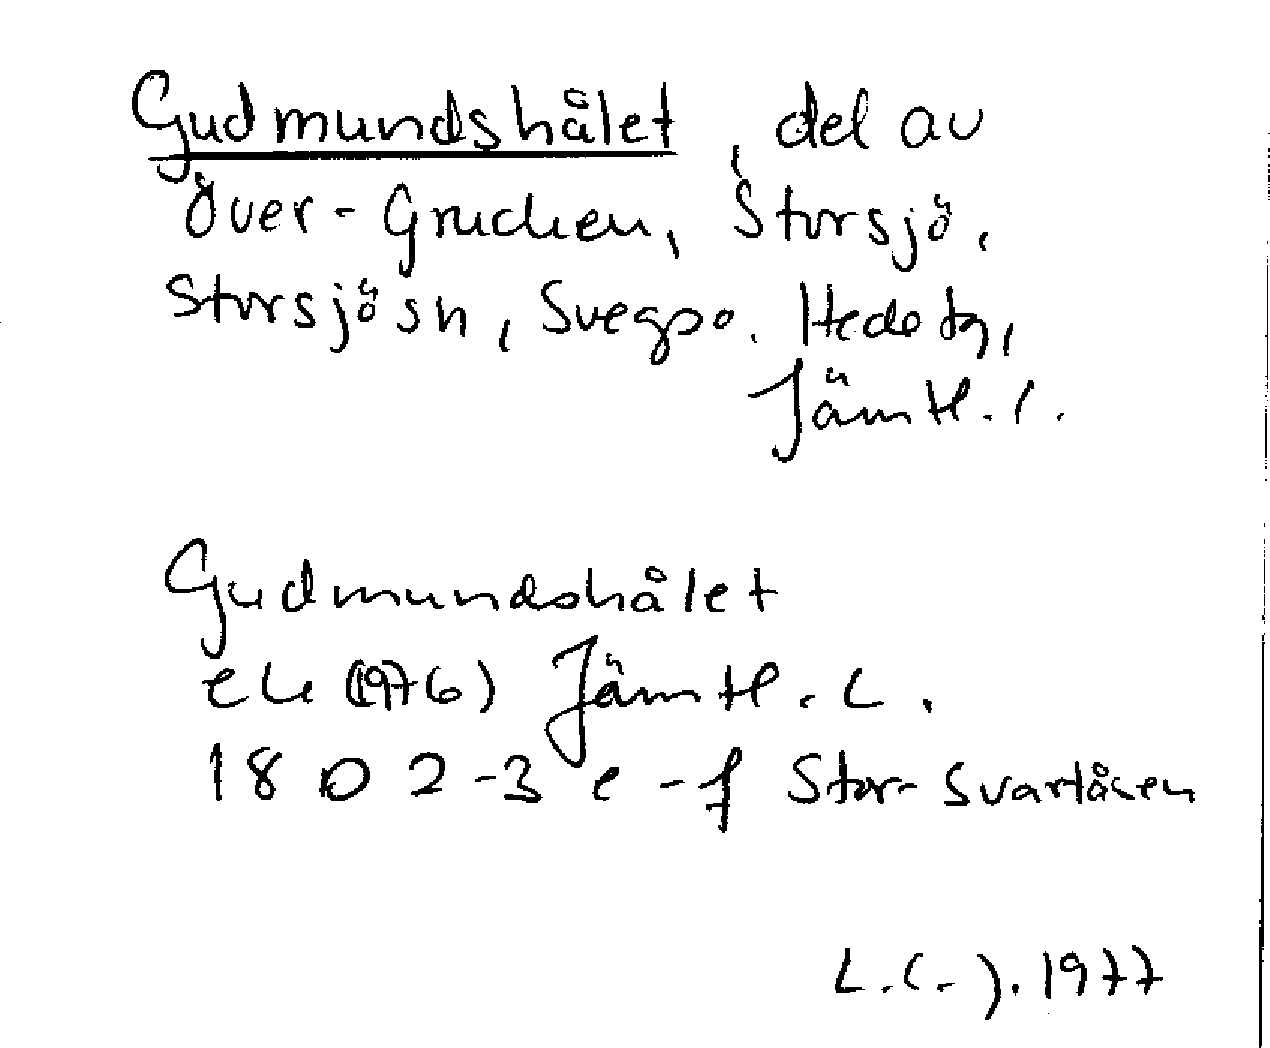 Gudmundshålet, del av
Över-Grucken, Storsjö,
Storsjö sn, Svegs po. Hede tg,
Jämtl. l.
Gudmundshålet
ek (1976) Jämtl. L.
1802-3 e-f Stor-Svartåsen
1977